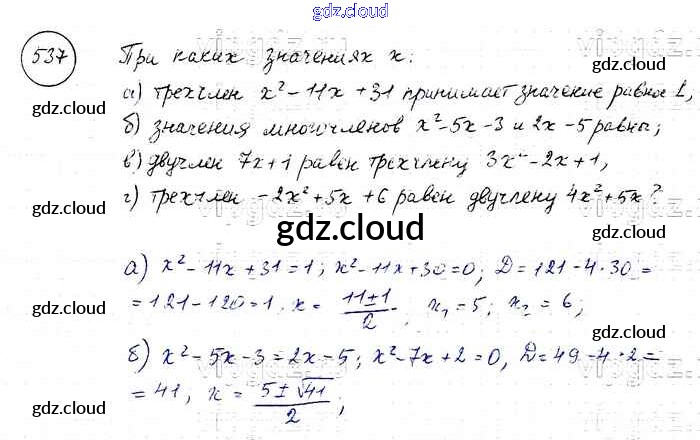 gdz.cloud
537 При каких значениях x:
а) трехчлен x² - 11x + 31 принимает значение равное 1,
gdz.cloud gdz.cloud
б) значения многочленов x² - 5x - 3 и 2x - 5 равны;
в) двучлен 7x + 1 равен трехчлену 3x² - 2x + 1,
г) трехчлен -2x² + 5x + 6 равен двучлену 4x² + 5x?
gdz.cloud gdz.cloud
gdz.cloud
а) x² - 11x + 31 = 1; x² - 11x + 30 = 0; D = 121 - 4·30 =
= 121 - 120 = 1, x = (11±1)/2, x₁ = 5; x₂ = 6;
gdz.cloud gdz.cloud
б) x² - 5x - 3 = 2x - 5; x² - 7x + 2 = 0, D = 49 - 4·2 =
= 41, x = (5±√41)/2;
gdz.cloud gdz.cloud